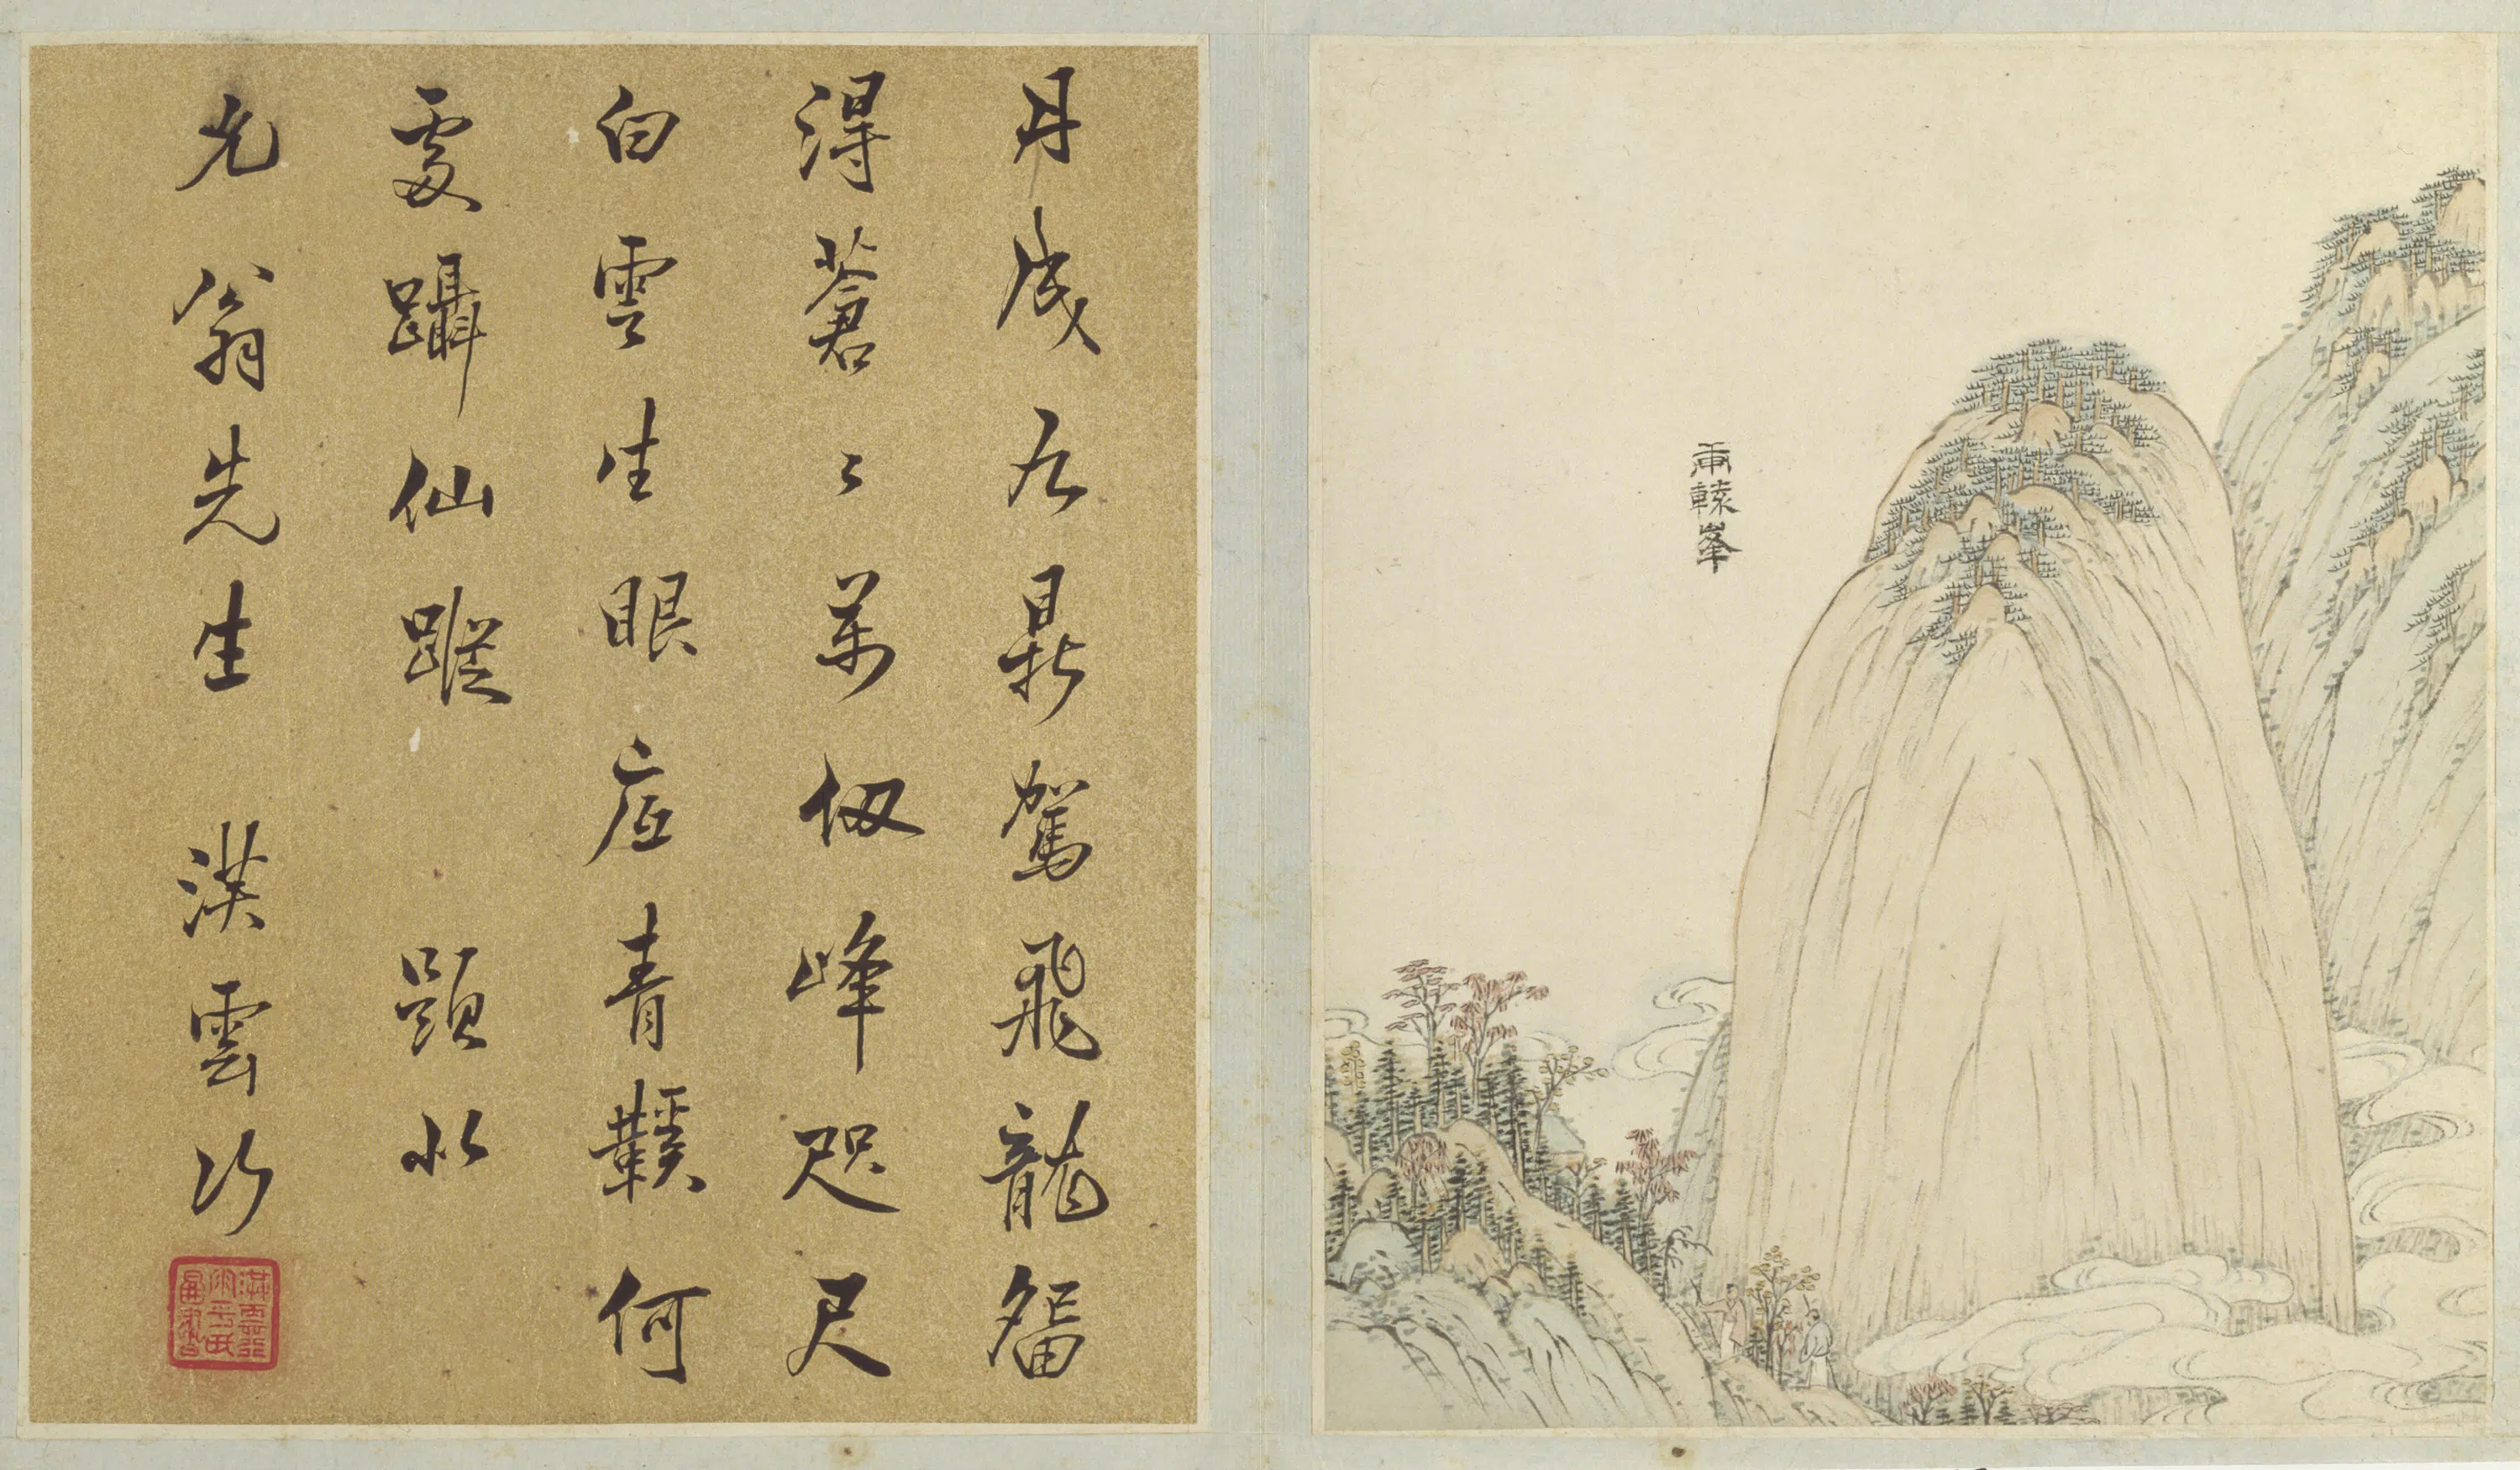 轅峯
丹成九鼎駕飛龍留
得蒼〻萬仞峰咫尺
白雲生眼底青鞵何
處躡仙蹤 題似
允翁先生 洪雲行